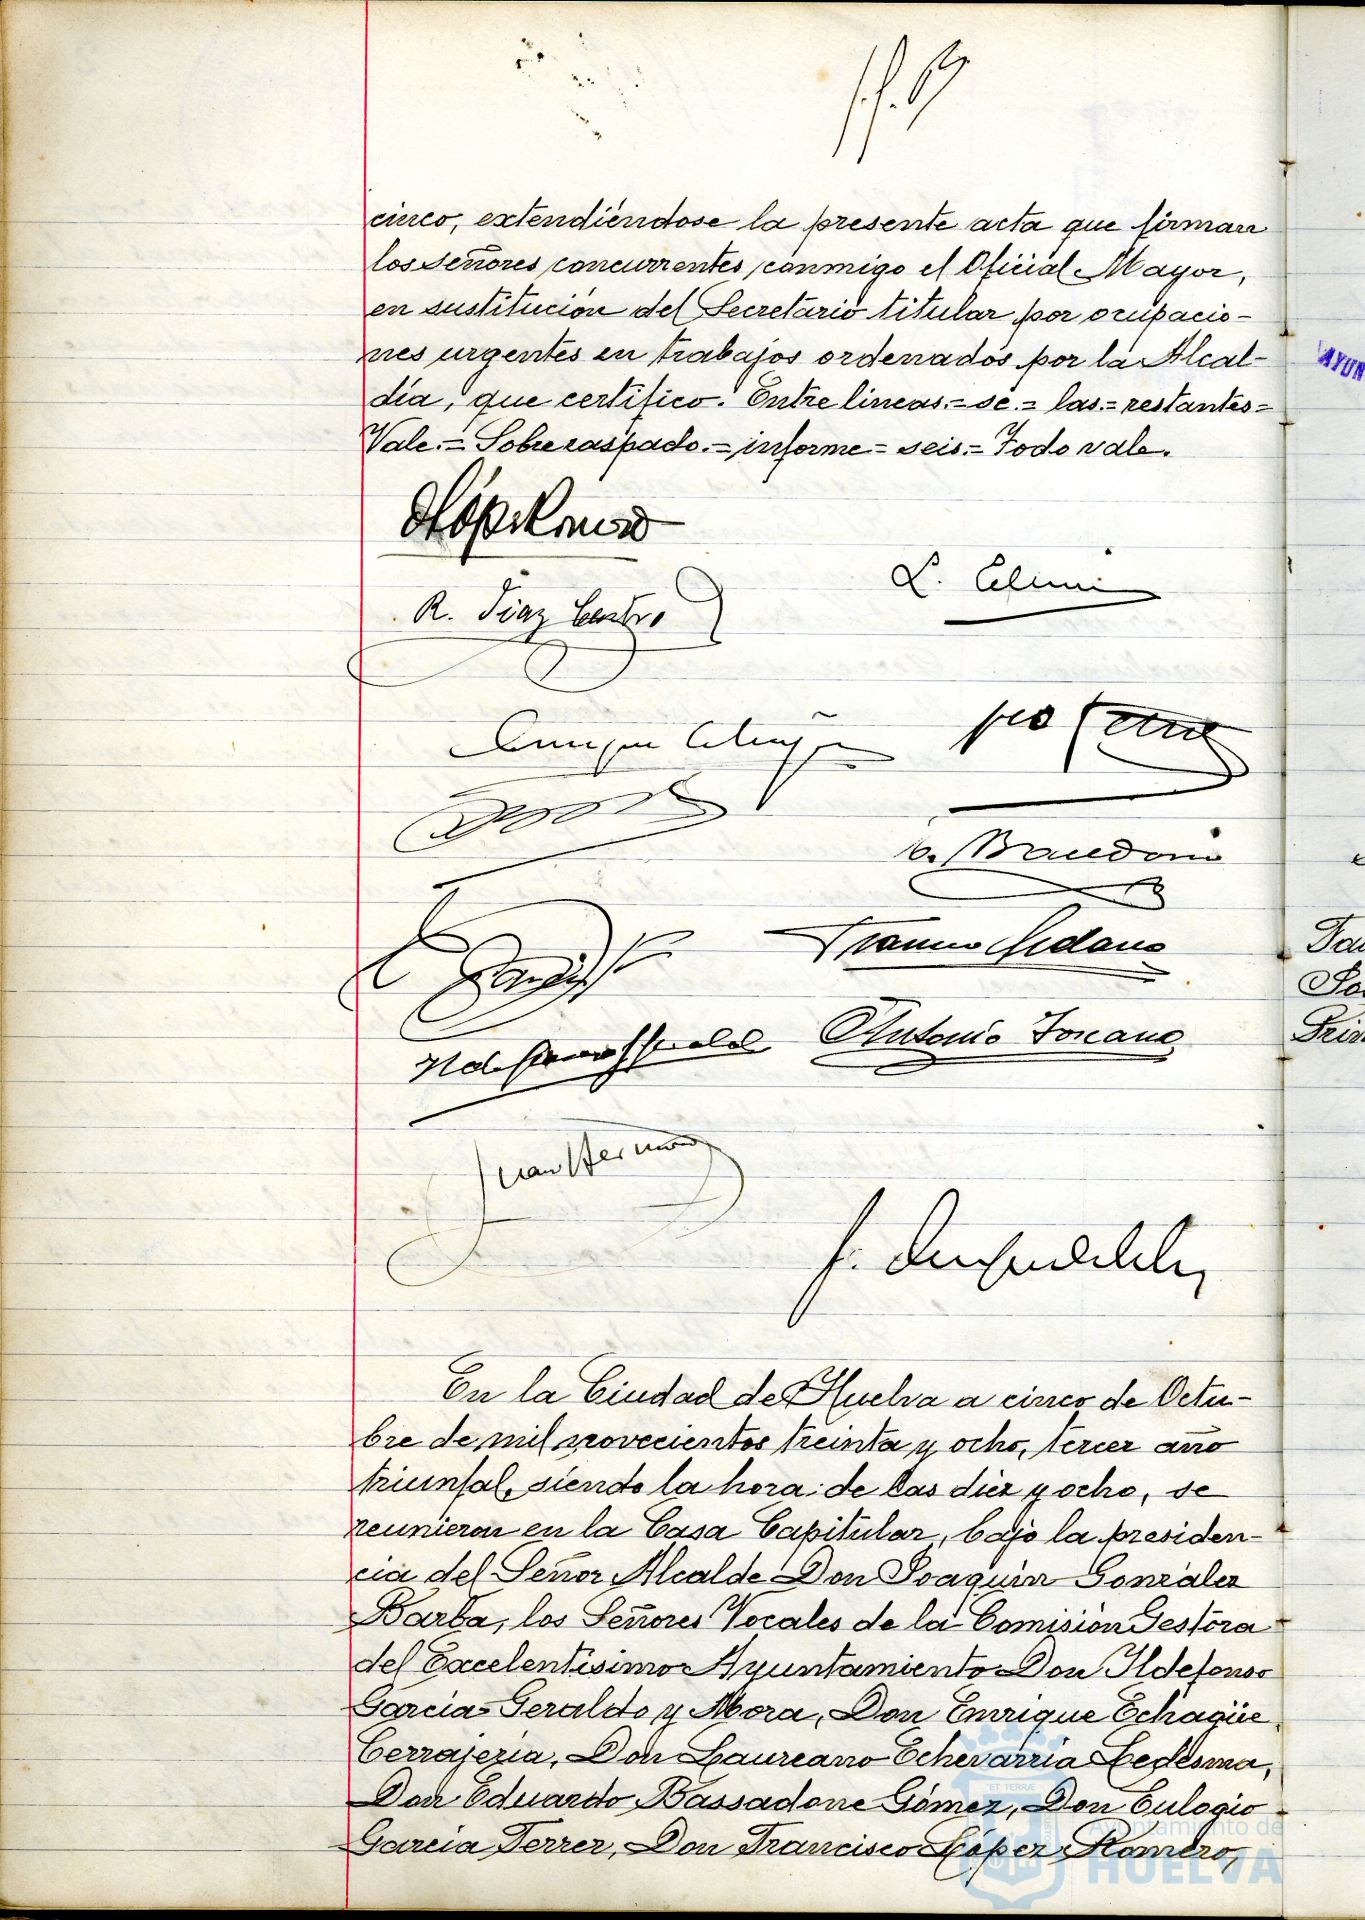 cinco, extendiéndose la presente acta que firman
los señores concurrentes, conmigo el Oficial Mayor,
en sustitución del Secretario titular por ocupacio-
nes urgentes en trabajos ordenados por la Alcal-
día, que certifico. Entre lineas.= se.= las.= restantes=
Vale.= Sobre raspado.= informe= seis.= Todo vale.
R. Diaz Castro
Antonio Toscano
Juan
En la Ciudad de Huelva a cinco de Octu-
bre de mil novecientos treinta y ocho, tercer año
triunfal, siendo la hora de las diez y ocho, se
reunieron en la Casa Capitular, bajo la presiden-
cia del Señor Alcalde Don Joaquín González
Barba, los Señores Vocales de la Comisión Gestora
del Excelentísimo Ayuntamiento Don Ildefonso
García-Geraldo y Mora, Don Enrique Echagüe
Cerrajería, Don Laureano Echevarría Ledesma,
Don Eduardo Bassadone Gómez, Don Eulogio
García Ferrer, Don Francisco López Romero,
Ayuntamiento de
HUELVA
AYUN